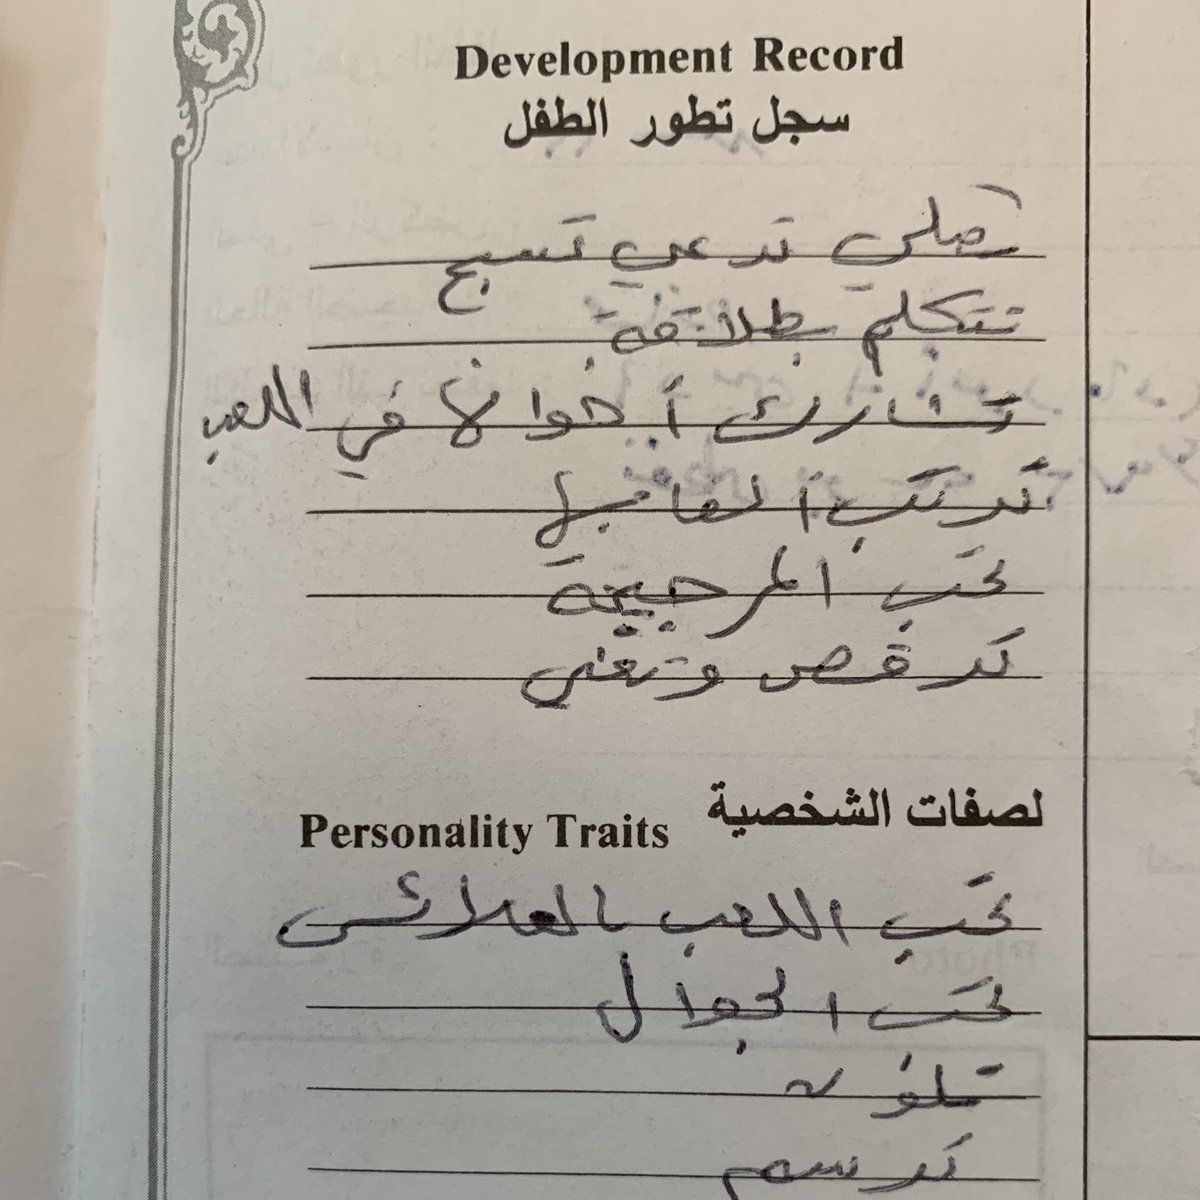 Development Record
سجل تطور الطفل
تصلي تدعي تسبح
تتكلم بطلاقة
تشارك أخوانها في اللعب
ترتب ألعابها
تحب المرجيحة
ترقص وتغني
لصفات الشخصية
Personality Traits
تحب اللعب بالعرائس
تحب الجوال
تلون
ترسم